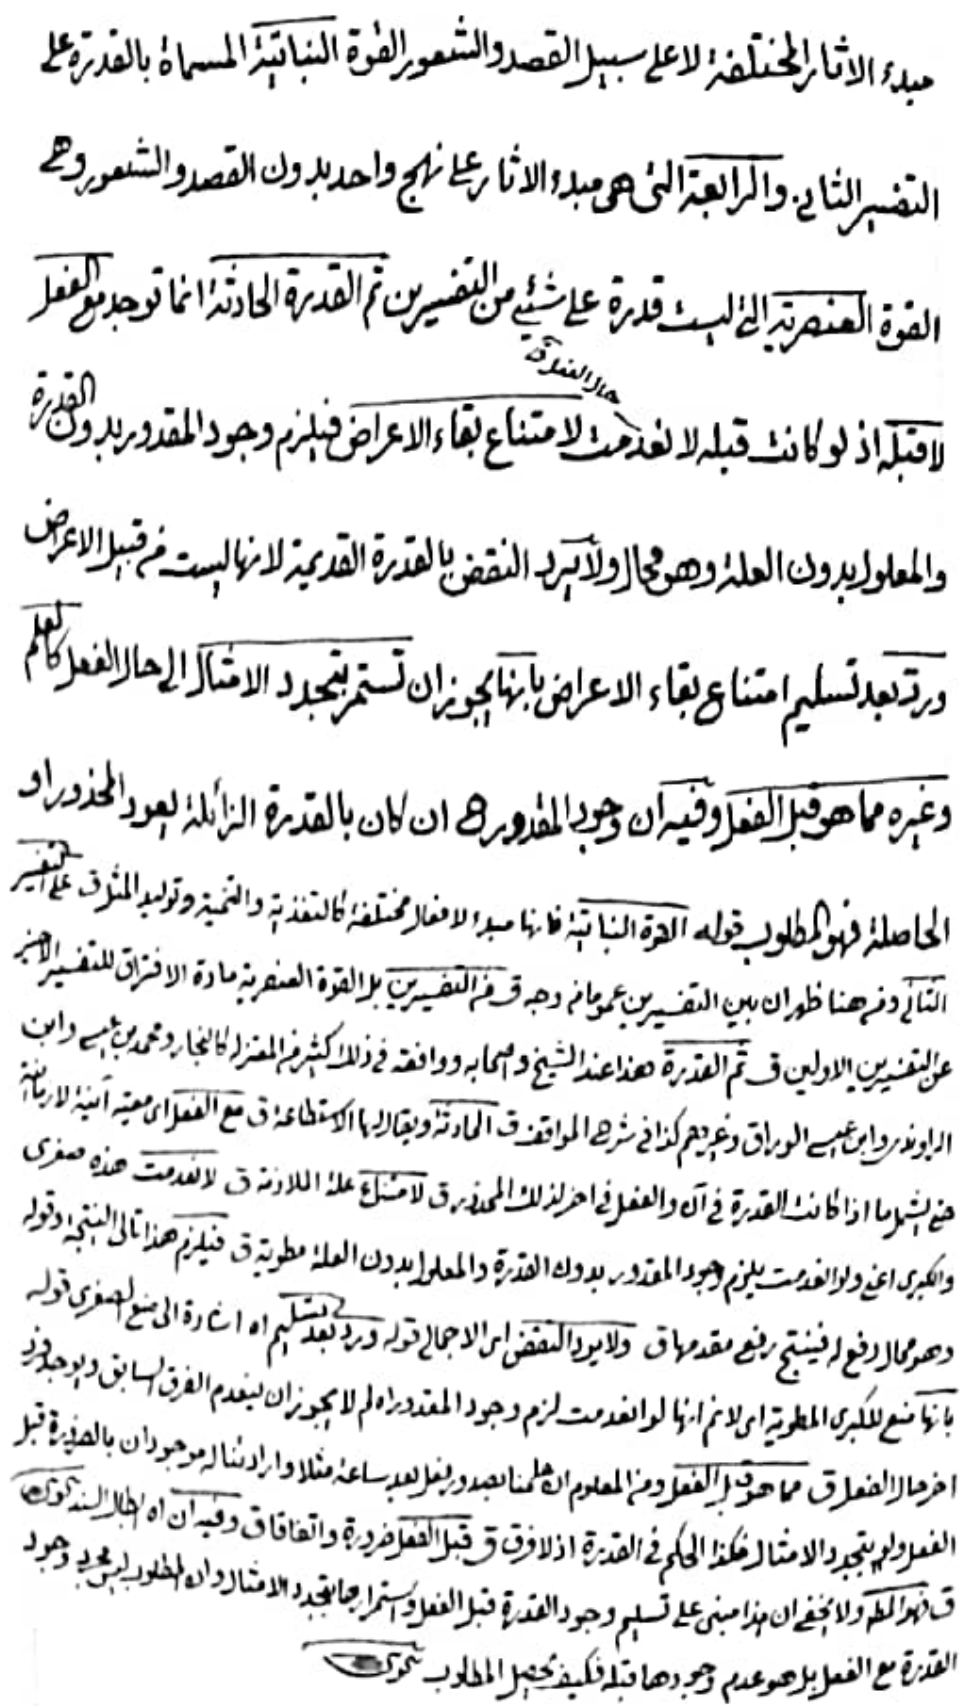 مبدء الاثار المختلفة لا على سبيل القصد والشعور القوة النباتية المسماة بالقدرة على
التفسير الثاني. والرابعة التى هى مبدء الاثار على نهج واحد بدون القصد والشعور وهى
القوة العنصرية التى ليست قدرة على شئ من التفسيرين ثم القدرة الحادثة انما توجد مع الفعل
حال الفعل ق
لا قبله اذ لو كانت قبله لانعدمت لامتناع بقاء الاعراض فيلزم وجود المقدور بدون القدرة
والمعلول بدون العلة وهو محال ولا يرد النقض بالقدرة القديمة لانها ليست من قبيل الاعراض
ورد بعد تسليم امتناع بقاء الاعراض بانها يجوز ان تستمر بتجدد الامثال الى حال الفعل كالعلم
وغيره مما هو قبل الفعل وفيه ان وجود المقدور هى ان كان بالقدرة الزائلة يعود المحذور او
الحاصلة فهو المطلوب قوله القوة النباتية فانها مبدء لافعال مختلفة كالتغذية والتنمية وتوليد المثل ق على التفسير
الثانى ومن هنا ظهر ان بين التفسيرين عموما من وجه ق من التفسيرين بل القوة العنصرية مادة الافتراق للتفسير الاخير
عن التفسيرين الاولين ق ثم القدرة هذا عند الشيخ واصحابه ووافقه فى ذلك كثير من المعتزلة كالنجار ومحمد بن عيسى وابن
الراوندى وابى عيسى الوراق وغيرهم كذا فى شرح المواقف ق الحادثة ويقال لها الاستطاعة ق مع الفعل اى معية آنية لا زمانية
حتى يشمل ما اذا كانت القدرة فى آن والفعل فى اخر لذلك المحذور ق لامتناع علة الملازمة ق لانعدمت هذه صغرى
والكبرى اعنى ولو انعدمت يلزم وجود المقدور بدون القدرة والمعلول بدون العلة مطوية ق فيلزم هذا تالى النتيجة وقوله
وهو محال رفع له فينتج رفع مقدمها ق ولا يرد النقض اى الاجمالى قوله ورد بعد تسليم اه اشارة الى منع الصغرى قوله
بانها منع للكبرى المطوية اى لا نم انها لو انعدمت لزم وجود المقدور اه لم لا يجوز ان ينعدم الفرد السابق ويوجد فرد
اخر حال الفعل ق مما هو قبل الفعل ومن المعلوم ان علمنا بصدور فعل بعد ساعة مثلا وارادتنا له موجودان بالضرورة قبل
الفعل ولو بتجدد الامثال فكذا الحكم فى القدرة اذ لا فرق ق قبل الفعل ضرورة واتفاقا ق وفيه ان اه ابطال السند
ق فهو المط ولا يخفى ان هذا مبنى على تسليم وجود القدرة قبل الفعل واستمرارها بتجدد الامثال وان المطلوب ليس مجرد وجود
القدرة مع الفعل بل هو عدم وجودها قبله فكيف يحصل المطلوب